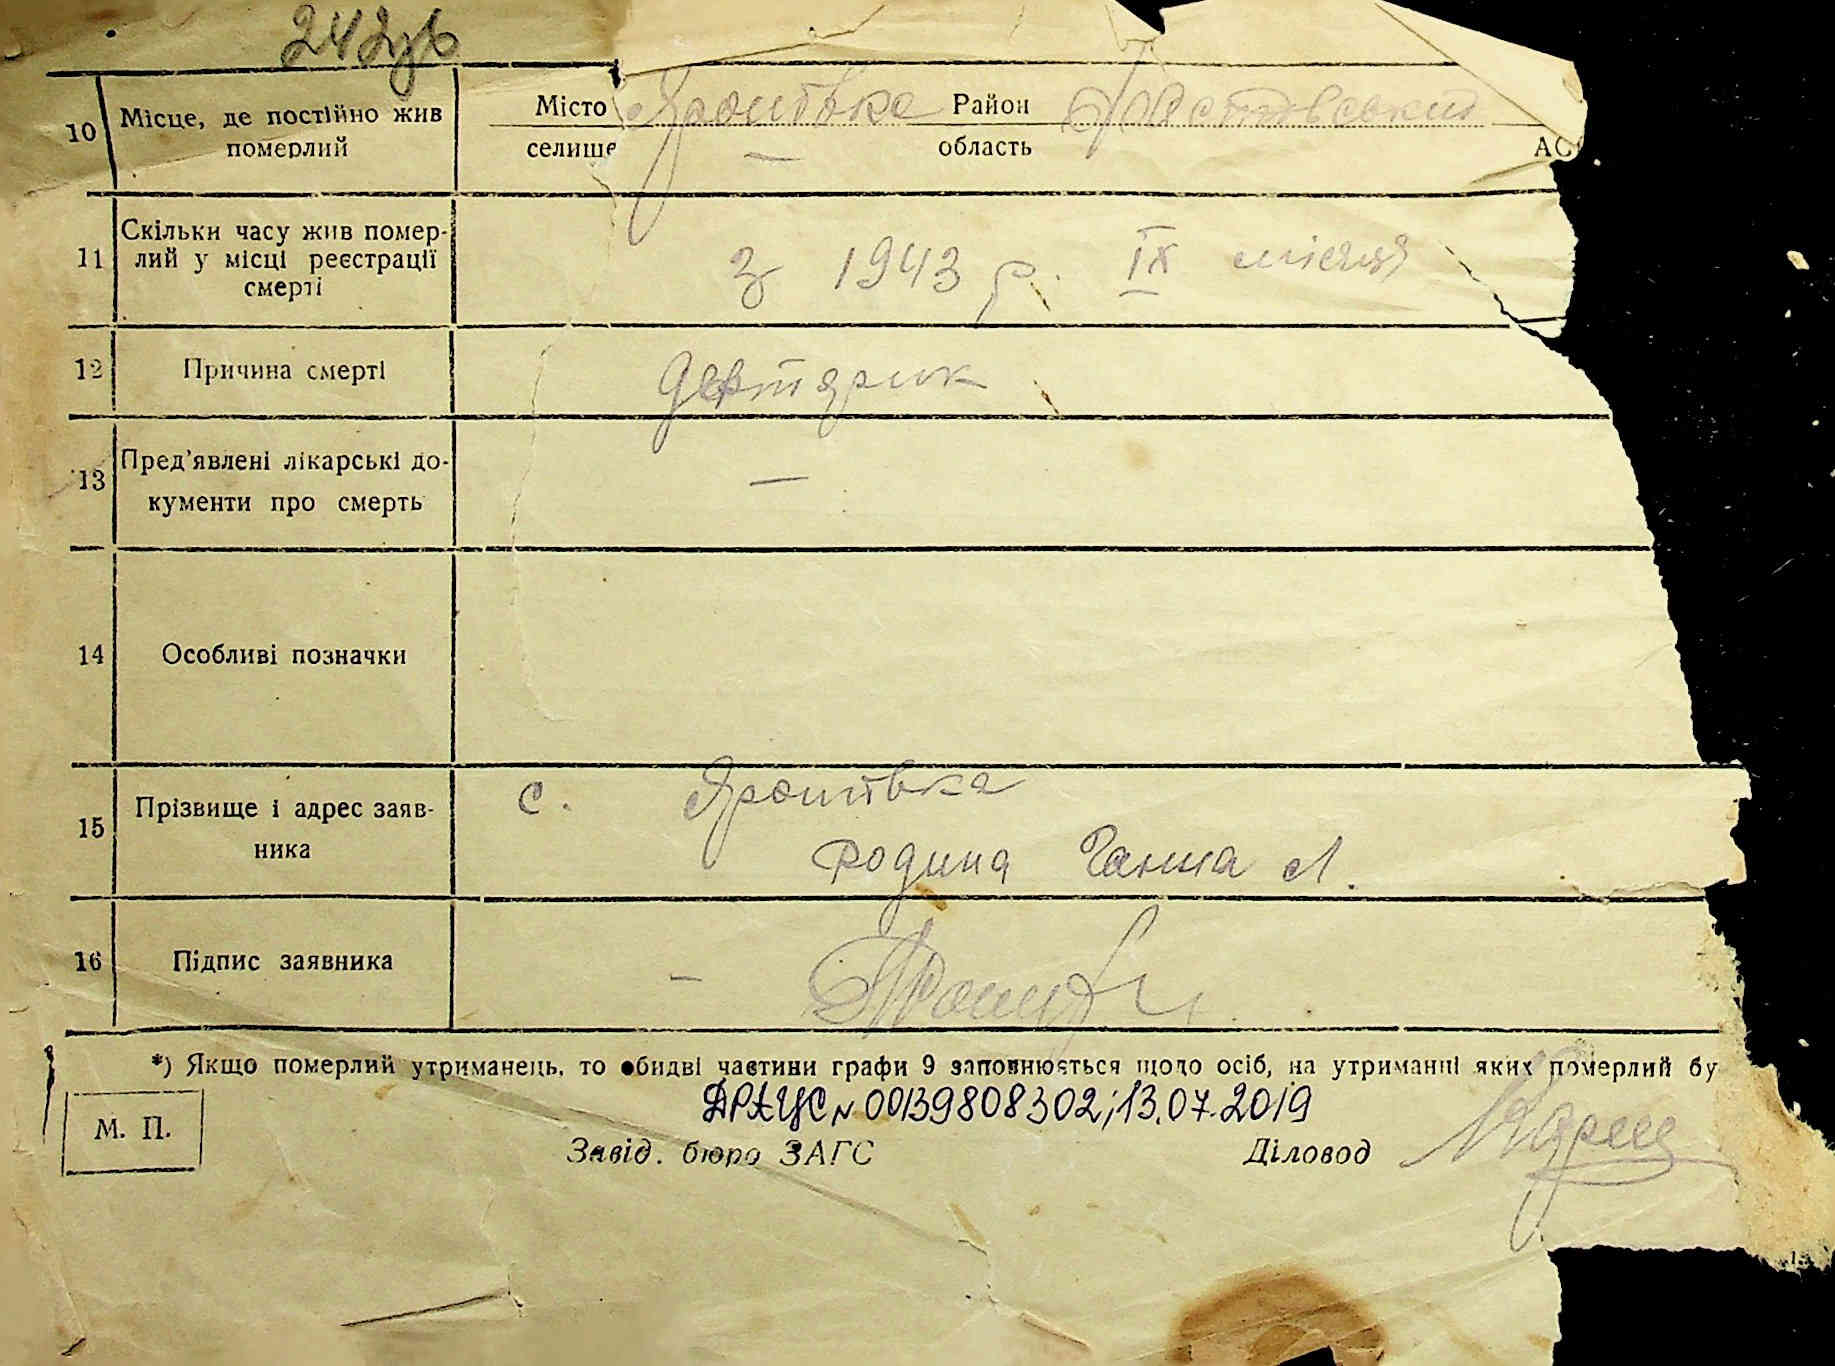 242зв
10 Місце, де постійно жив Місто Яропівка Район Фастівський
померлий селище — область АС
11 Скільки часу жив помер-
лий у місці реєстрації з 1943 р. IX місяця
смерті
12 Причина смерті
13 Пред'явлені лікарські до- —
кументи про смерть
14 Особливі позначки
15 Прізвище і адрес заяв- с. Яропівка
ника Родина Ганна Л.
16 Підпис заявника —
*) Якщо померлий утриманець, то обидві частини графи 9 заповнюється щодо осіб, на утриманні яких померлий бу
ДРАЦС № 00139808302; 13.07.2019
М. П. Завід. бюро ЗАГС Діловод